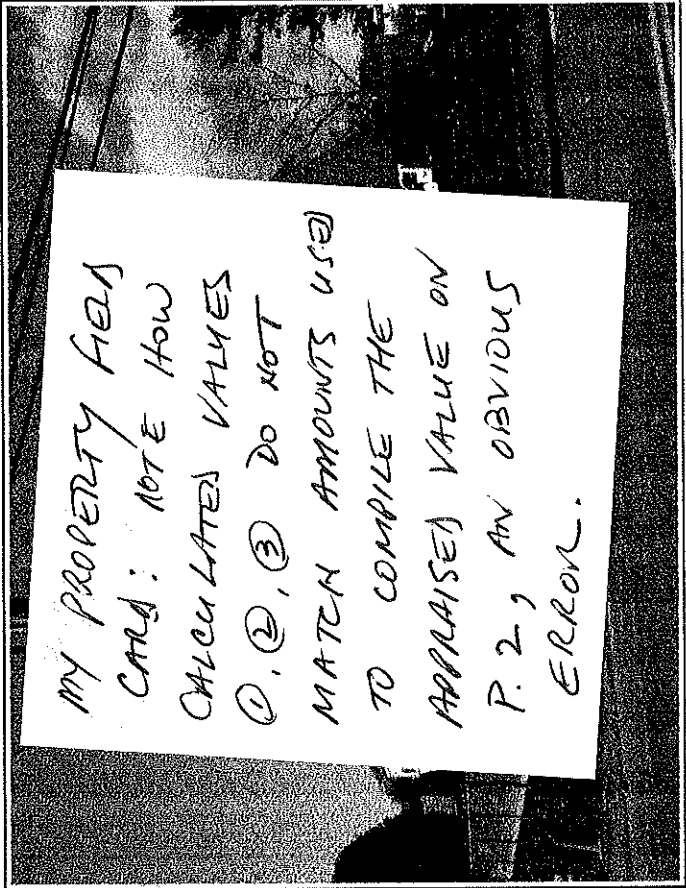 MY PROPERTY FIELD
CARD: NOTE HOW
CALCULATED VALUES
①, ②, ③ DO NOT
MATCH AMOUNTS USED
TO COMPILE THE
APPRAISED VALUE ON
P. 2, AN OBVIOUS
ERROR.